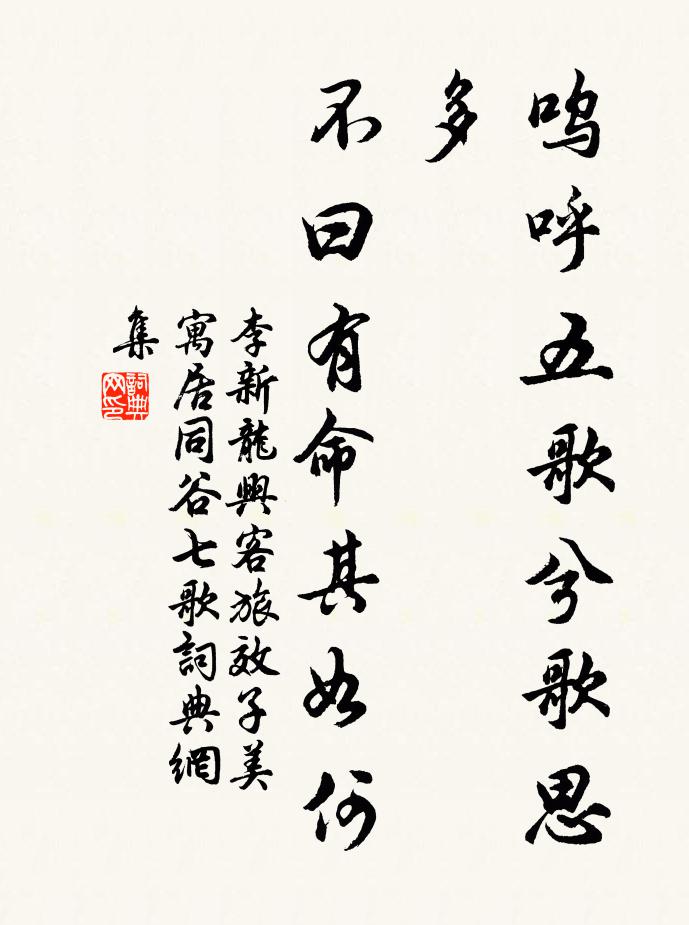 嗚呼五歌兮歌思
多
不曰有命其如何
李新龍興客旅效子美
寓居同谷七歌詞典網
集
詞典网印